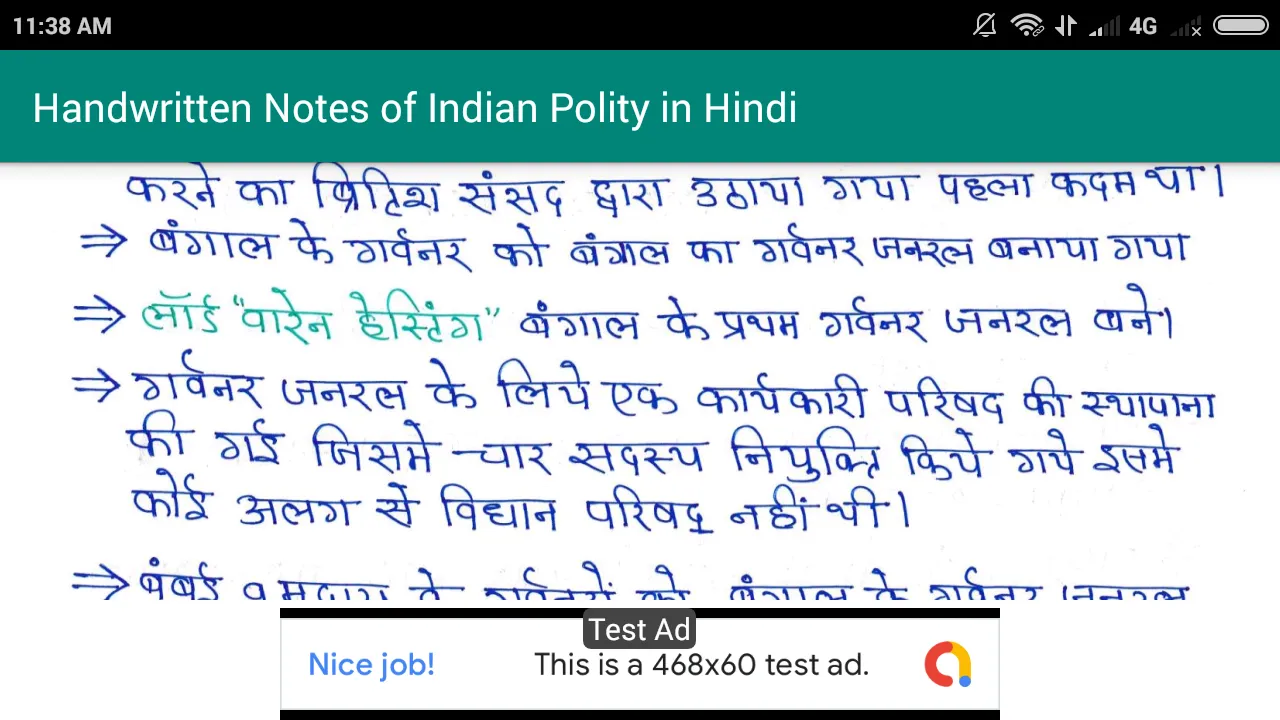 11:38 AM
4G
Handwritten Notes of Indian Polity in Hindi
करने का ब्रिटिश संसद द्वारा उठाया गया पहला कदम था।
⇒ बंगाल के गर्वनर को बंगाल का गर्वनर जनरल बनाया गया
⇒ लॉर्ड "वारेन हेस्टिंग" बंगाल के प्रथम गर्वनर जनरल बने।
⇒ गर्वनर जनरल के लिये एक कार्यकारी परिषद की स्थापाना
की गई जिसमे चार सदस्य नियुक्ति किये गये इसमे
कोई अलग से विधान परिषद् नहीं थी।
⇒ बंबई व मद्रास के गर्वनरों को बंगाल के गर्वनर जनरल
Test Ad
Nice job! This is a 468x60 test ad.